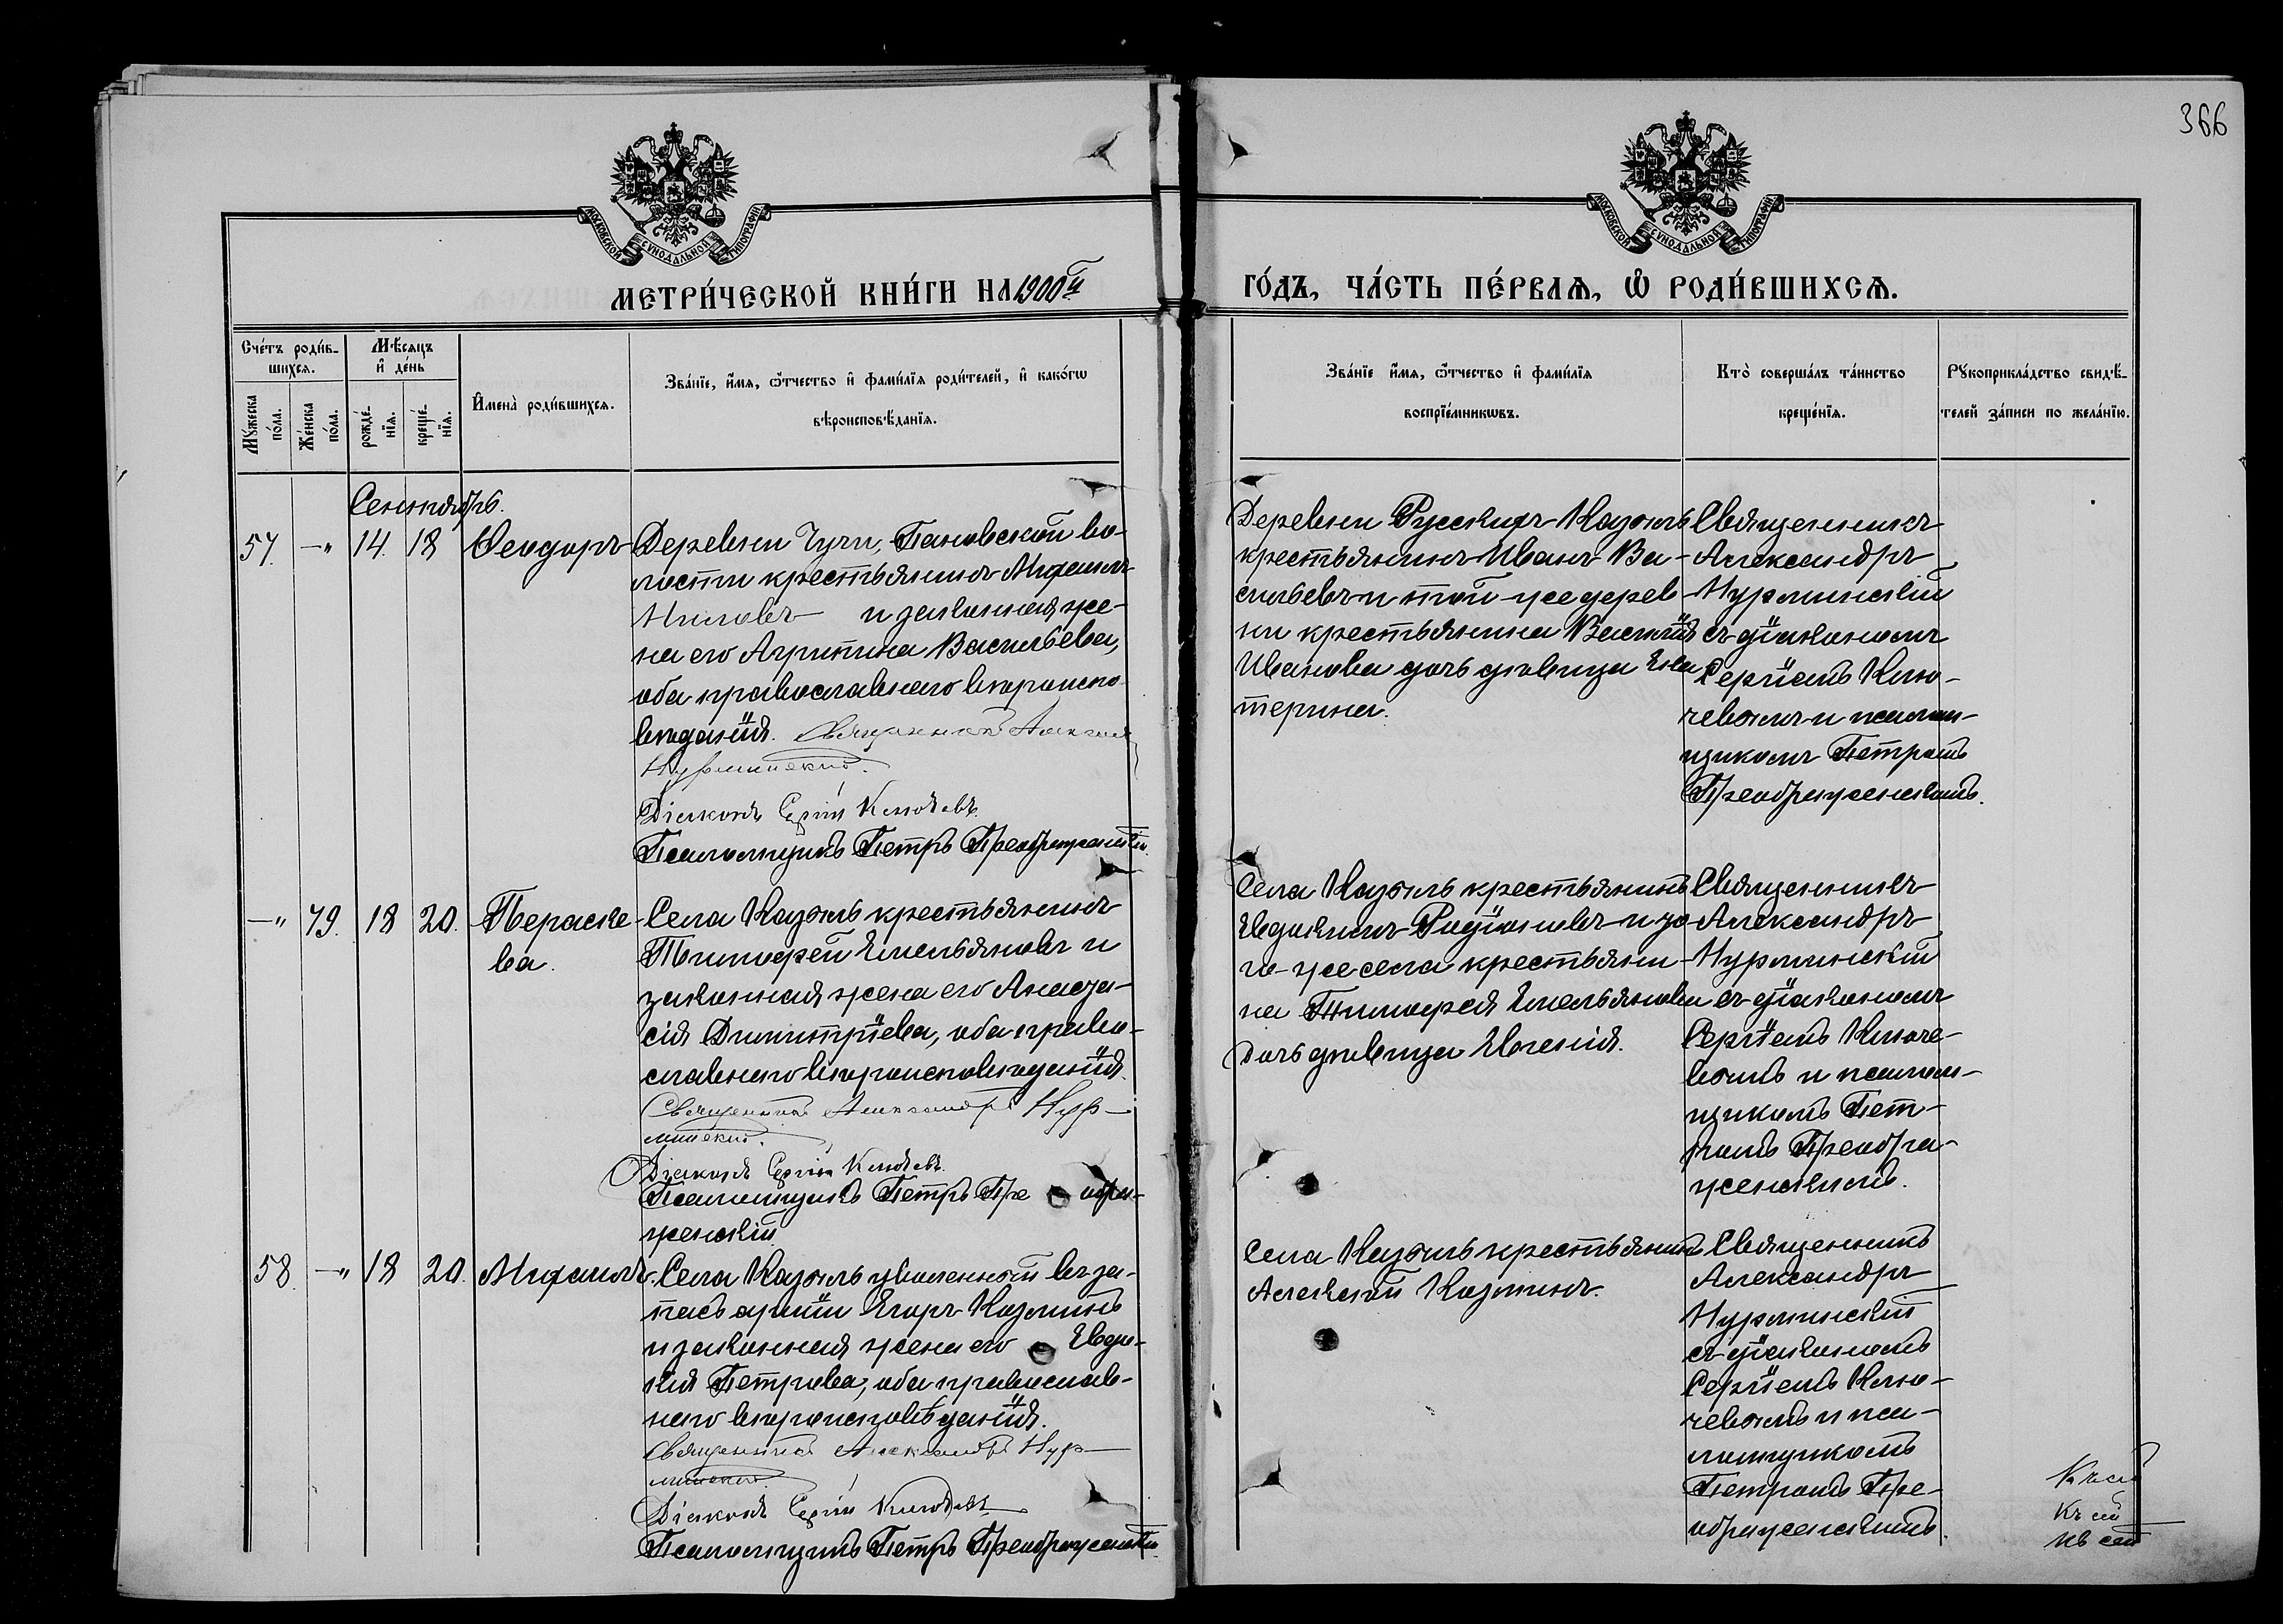 366
МОСКОВСКОЙ СѴНОДАЛЬНОЙ ТИПОГРАФІИ
МОСКОВСКОЙ СѴНОДАЛЬНОЙ ТИПОГРАФІИ
МЕТРИ́ЧЕСКОЙ КНИ́ГИ НА 1900й
ГО́ДЪ, ЧА́СТЬ ПЕ́РВАѦ, Ѡ҆ РОДИ́ВШИХСѦ.
Сче́тъ роди́в-
шихсѧ.
Мꙋжеска
по́ла.
Же́нска
по́ла.
Мѣ́сѧцъ
и҆ де́нь
рожде́-
нїѧ.
креще́-
нїѧ.
И҆мена̀ роди́вшихсѧ.
Зва́нїе, и҆́мѧ, ѻ҆́тчество и҆ фами́лїѧ роди́телей, и҆ како́гѡ
вѣроисповѣ́данїѧ.
Зва́нїе и҆́мѧ, ѻ҆́тчество и҆ фами́лїѧ
воспрїе́мникѡвъ.
Кто̀ соверша́лъ та́инство
креще́нїѧ.
Рꙋкоприкла́дство свидѣ́-
телей за́писи по жела́нїю.
Сентябрь.
57. —" 14. 18 Ѳеодоръ
Деревни Чучи, Пановской во-
лости крестьянинъ Михаилъ
Ниловъ и законная же-
на его Агрипина Васильева,
оба православнаго вѣроиспо-
вѣданія. Священникъ Александръ
Нурминскій.
Діаконъ Сергій Ключевъ.
Псаломщикъ Петръ Преображенскій.
Деревни Русскихъ Казыль
крестьянинъ Иванъ Ва-
сильевъ и той-же дерев-
ни крестьянина Василія
Иванова дочь дѣвица Ека-
терина.
Священникъ
Александръ
Нурминскій
съ діакономъ
Сергіемъ Клю-
чевымъ и псалом-
щикомъ Петромъ
Преображенскимъ.
—" 79. 18 20. Параске-
ва.
Села Казыль крестьянинъ
Тимофей Емельяновъ и
законная жена его Анаста-
сія Димитріева, оба право-
славнаго вѣроисповѣданія.
Священникъ Александръ Нур-
минскій.
Діаконъ Сергій Ключевъ.
Псаломщикъ Петръ Преобра-
женскій
Села Казыль крестьянинъ
Евдокимъ Родіоновъ и то-
го-же села крестьяни-
на Тимофея Емельянова
дочь дѣвица Евгенія.
Священникъ
Александръ
Нурминскій
съ діакономъ
Сергіемъ Ключе-
вымъ и псалом-
щикомъ Пет-
ромъ Преобра-
женскимъ.
58. —" 18 20. Михаилъ.
Села Казыль уволенный въ за-
пасъ арміи Егоръ Козминъ
и законная жена его Евдо-
кія Петрова, оба православ-
наго вѣроисповѣданія.
Священникъ Александръ Нур-
минскій.
Діаконъ Сергій Ключевъ
Псаломщикъ Петръ Преображенскій
Села Казыль крестьянинъ
Алексѣй Козминъ.
Священникъ
Александръ
Нурминскій
съ діакономъ
Сергіемъ Клю-
чевымъ и пса-
ломщикомъ
Петромъ Пре-
ображенскимъ.
Къ сей
Къ сей
Къ сей